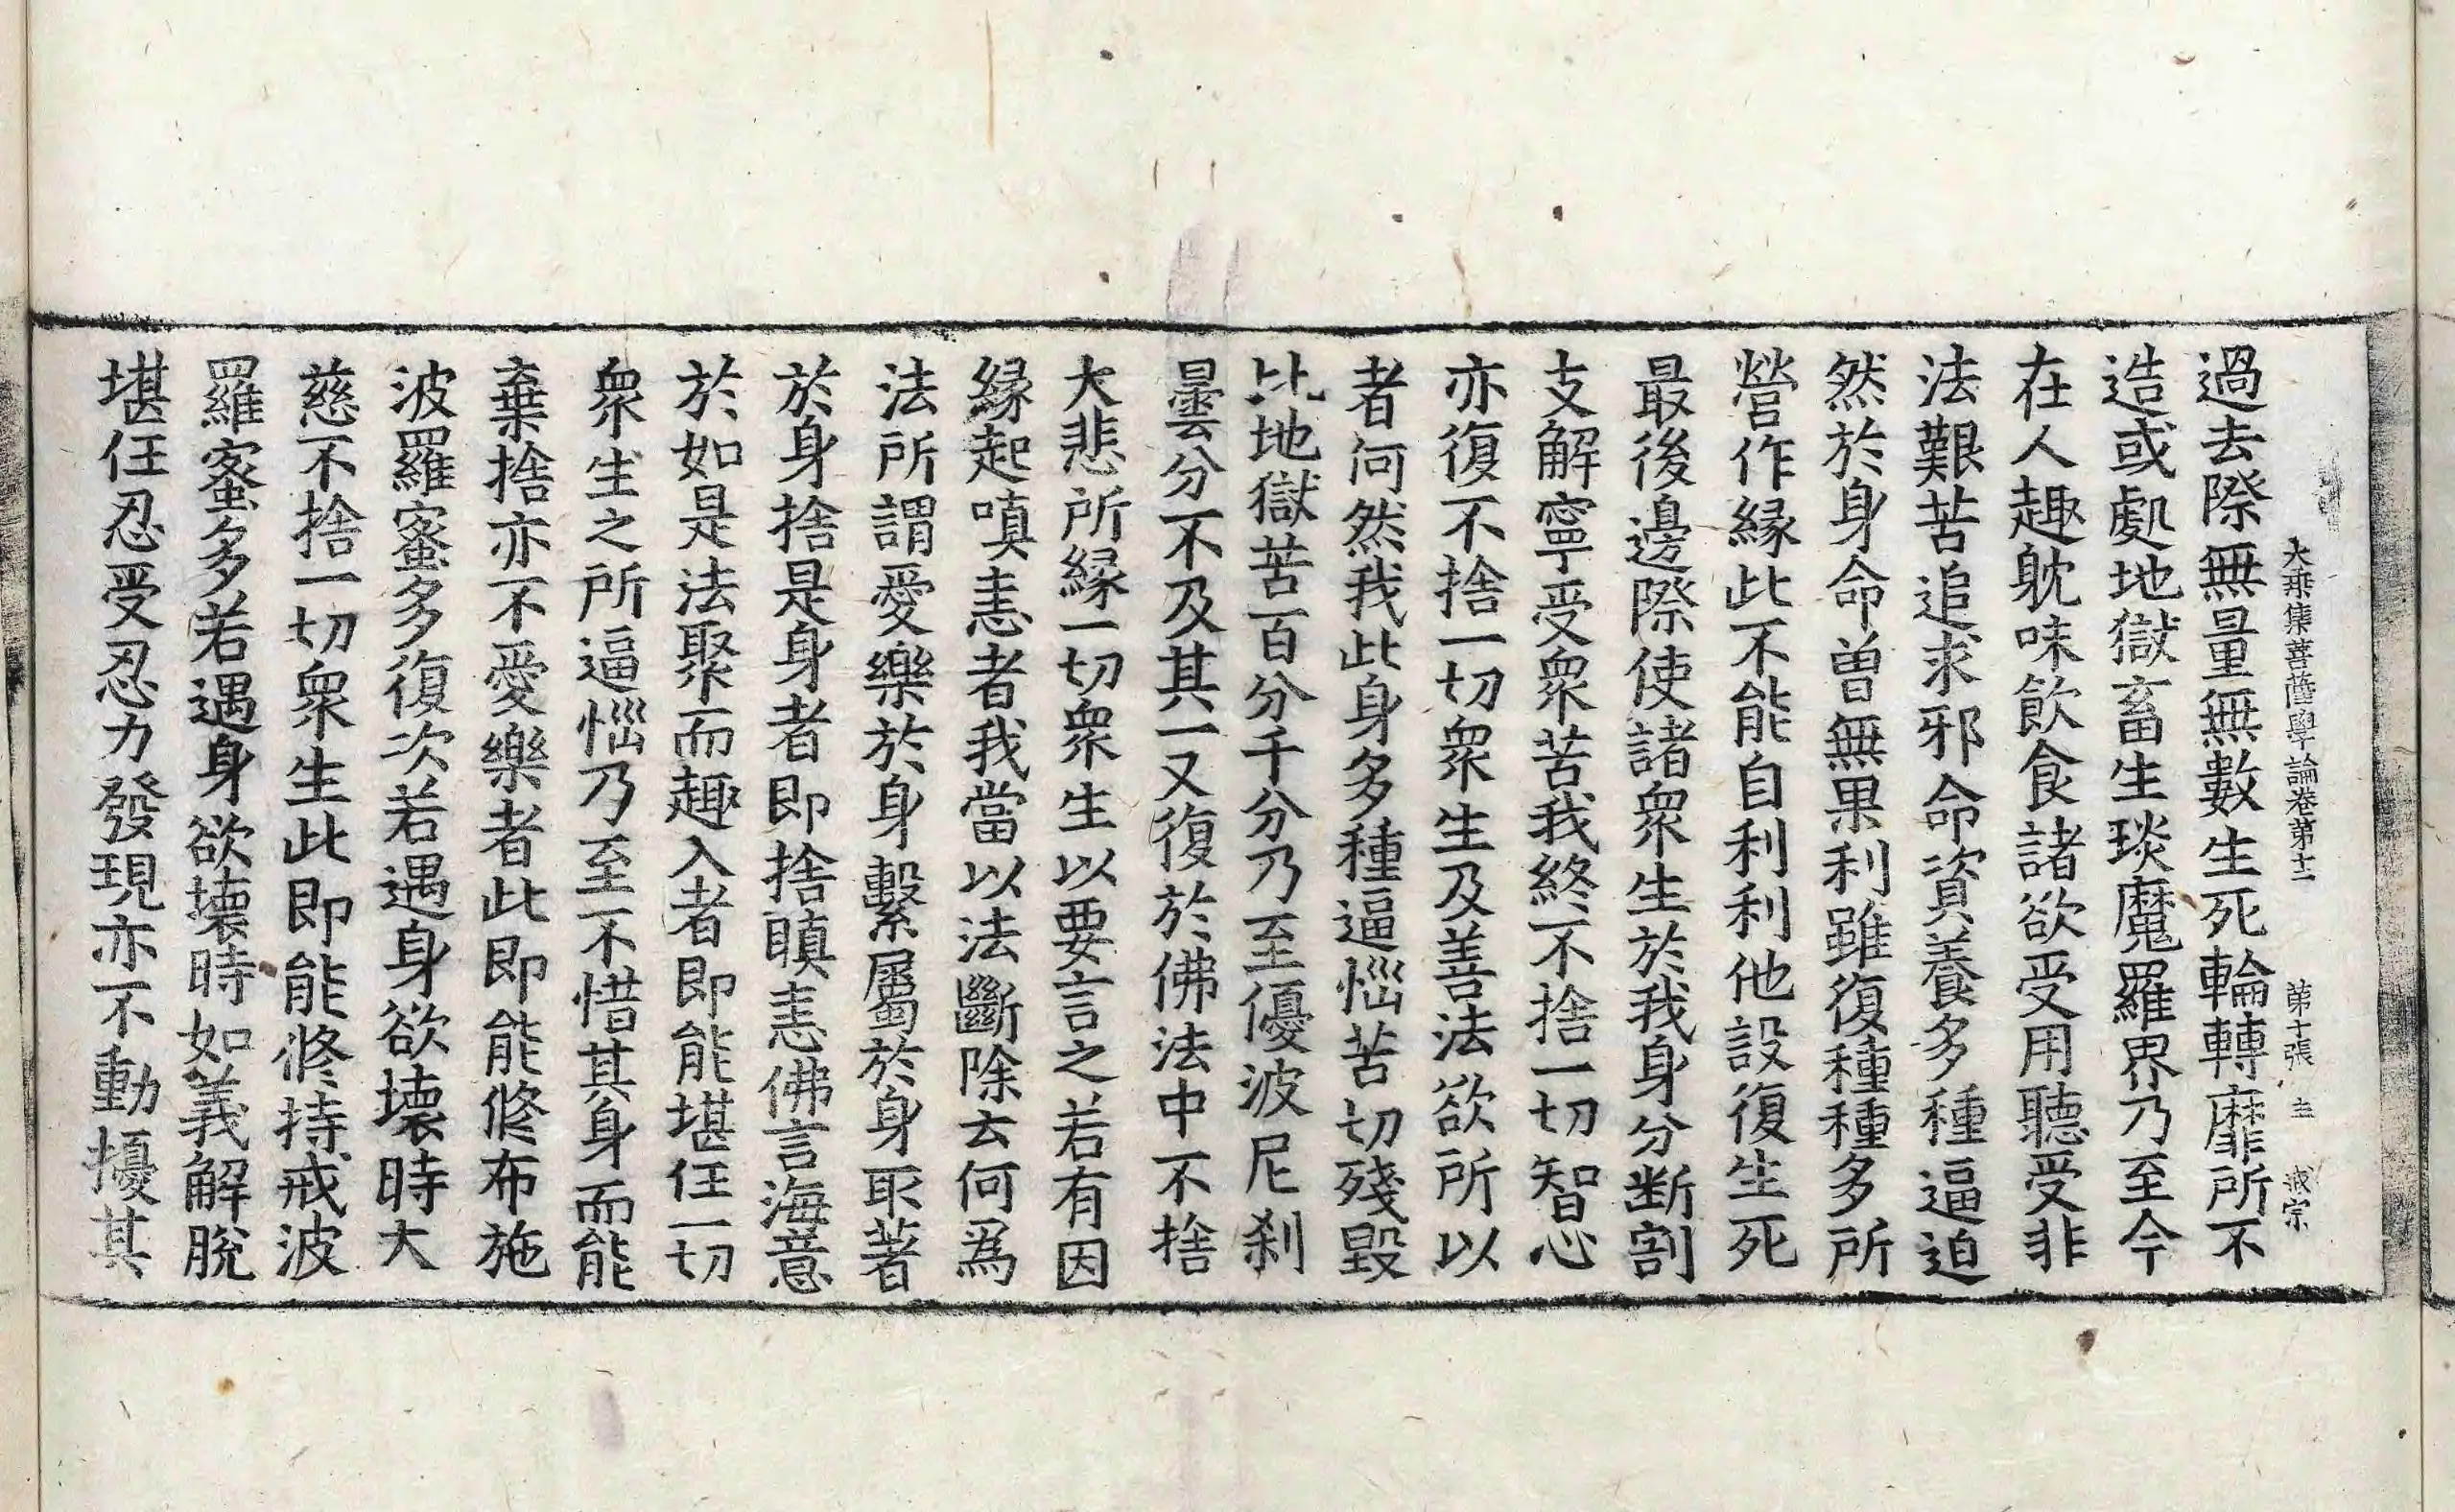 大乗集菩薩學論卷第十二 第十張 主
過去際無量無數生死輪轉靡所不
造或處地獄畜生琰魔羅界乃至今
在人趣躭味飲食諸欲受用聽受非
法艱苦追求邪命資養多種逼迫
然於身命曽無果利雖復種種多所
營作縁此不能自利利他設復生死
最後邊際使諸衆生於我身分断割
支解寧受衆苦我終不捨一切智心
亦復不捨一切衆生及善法欲所以
者何然我此身多種逼惱苦切殘毀
比地獄苦百分千分乃至優波尼刹
曇分不及其一又復於佛法中不捨
大悲所縁一切衆生以要言之若有因
縁起嗔恚者我當以法斷除云何爲
法所謂愛樂於身繫屬於身取著
於身捨是身者即捨瞋恚佛言海意
於如是法聚而趣入者即能堪任一切
衆生之所逼惱乃至不惜其身而能
棄捨亦不愛樂者此即能修布施
波羅蜜多復次若遇身欲壞時大
慈不捨一切衆生此即能修持戒波
羅蜜多若遇身欲壞時如義解脫
堪任忍受忍力發現亦不動擾其